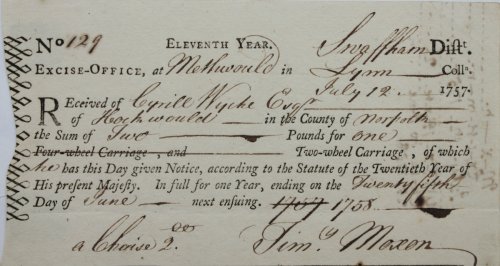 No 129 ELEVENTH YEAR. Swaffham Distt.
EXCISE-OFFICE, at Methwould in Lynn Colln.
July 12 1757.
RECEIVED of Cyrill Wyche Esqr
of Hockwould in the County of Norfolk
the Sum of Two Pounds for one
Four-wheel Carriage, and Two-wheel Carriage, of which
he has this Day given Notice, according to the Statute of the Twentieth Year of
His present Majesty. In full for one Year, ending on the Twenty fifth
Day of June next ensuing. 1757 1758.
a Chaise 2 Timy Moxon